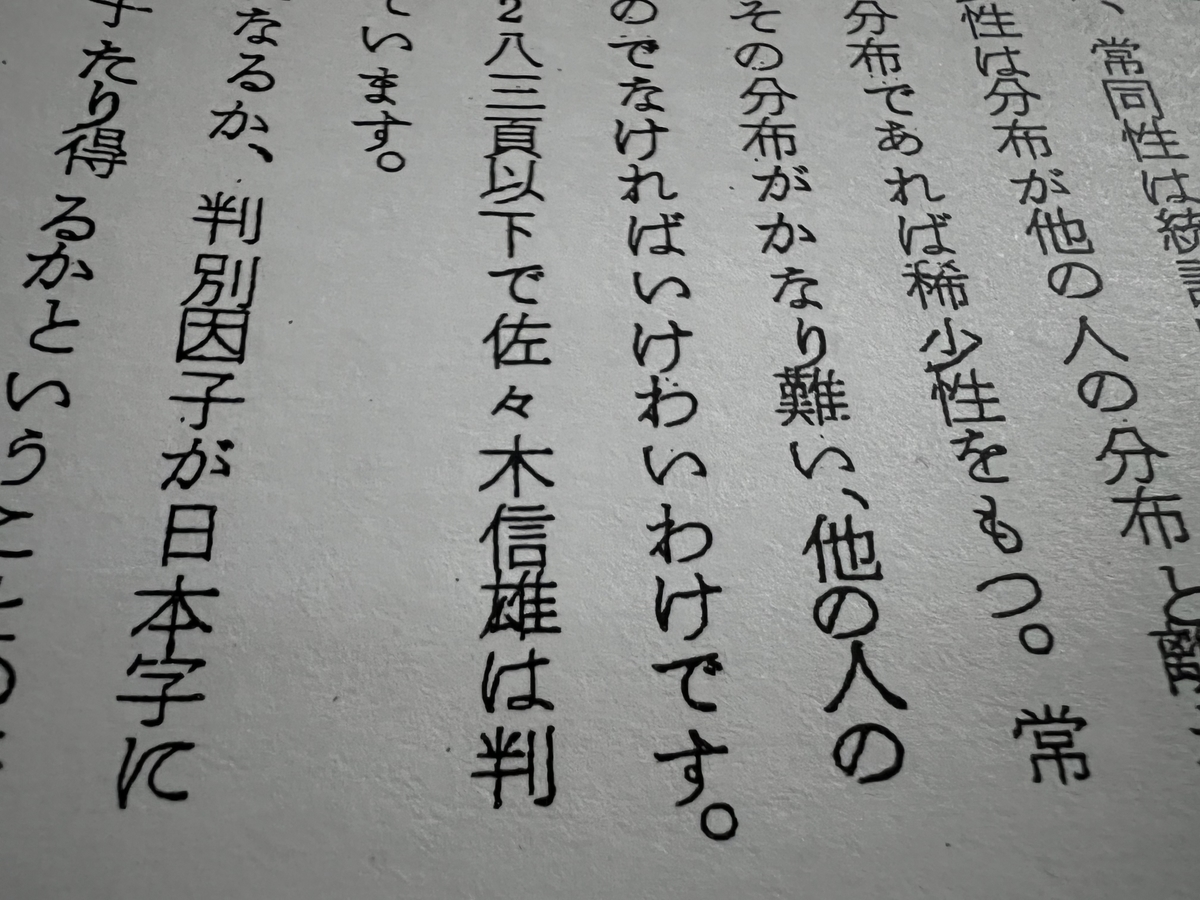 、常同性は統計
性は分布が他の人の分布と
分布であれば稀少性をもつ。常
その分布がかなり難い、他の人の
のでなければいけわいわけです。
2八三頁以下で佐々木信雄は判
ています。
なるか、判別因子が日本字に
子たり得るかという